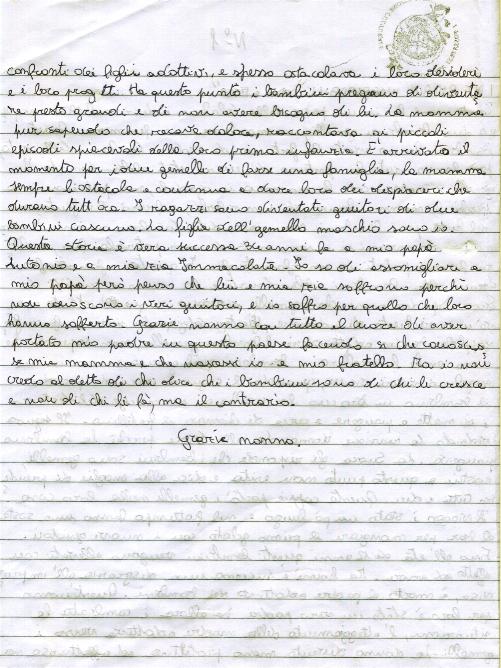 confronti dei figli adottivi, e spesso ostacolava i loro desideri
e i loro progetti. Ha questo punto i bambini pregano di diventa
re presto grandi e di non avere bisogno di lei. La mamma
pur sapendo che recava dolore, raccontava ai piccoli
episodi spiacevoli della loro prima infanzia. È arrivato il
momento per i due gemelli di farse una famiglia, la mamma
sempre li ostacola e continua a dare loro dei dispiaceri che
durano tutt'ora. I ragazzi sono diventati genitori di due
bambini ciascuno. La figlia dell'gemello maschio sono io.
Questa storia è vera successa 34 anni fa a mio papà
Antonio e a mia zia Immacolata. Io so di assomigliare a
mio papà però penso che lui e mia zia soffrono perchè
non conoscono i veri genitori, e io soffro per quello che loro
hanno sofferto. Grazie nonno con tutto il cuore di aver
portato mio padre in questo paese facendo si che conosces
se mia mamma e che nascessi io e mio fratello. Ma io non
credo al detto di chi dice che i bambini sono di chi li cresce
e non di chi li fà, ma il contrario.
Grazie nonno.